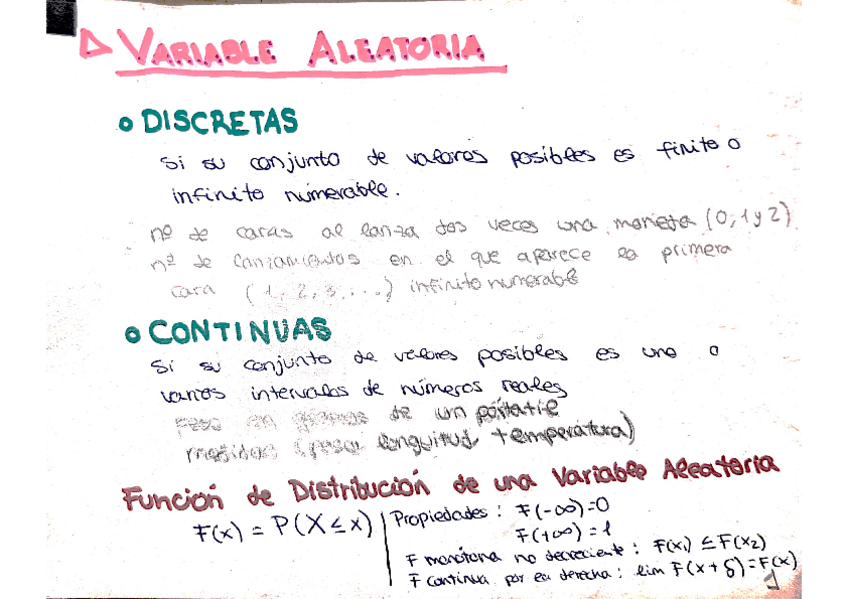 ▷ VARIABLE ALEATORIA
o DISCRETAS
Si su conjunto de valores posibles es finito o
infinito numerable.
nº de caras al lanza dos veces una moneda (0, 1 y 2)
nº de lanzamientos en el que aparece la primera
cara (1, 2, 3, ...) infinito numerable
o CONTINUAS
Si su conjunto de valores posibles es uno o
varios intervalos de números reales
Peso en gramos de un
medidas (peso longuitud, temperatura)
Función de Distribución de una Variable Aleatoria
F(x) = P(X ≤ x) | Propiedades: F(-∞)=0
F(+∞) = 1
F monótona no decreciente: F(x₁) ≤ F(x₂)
F continua por la derecha: lim F(x + δ) = F(x)
1